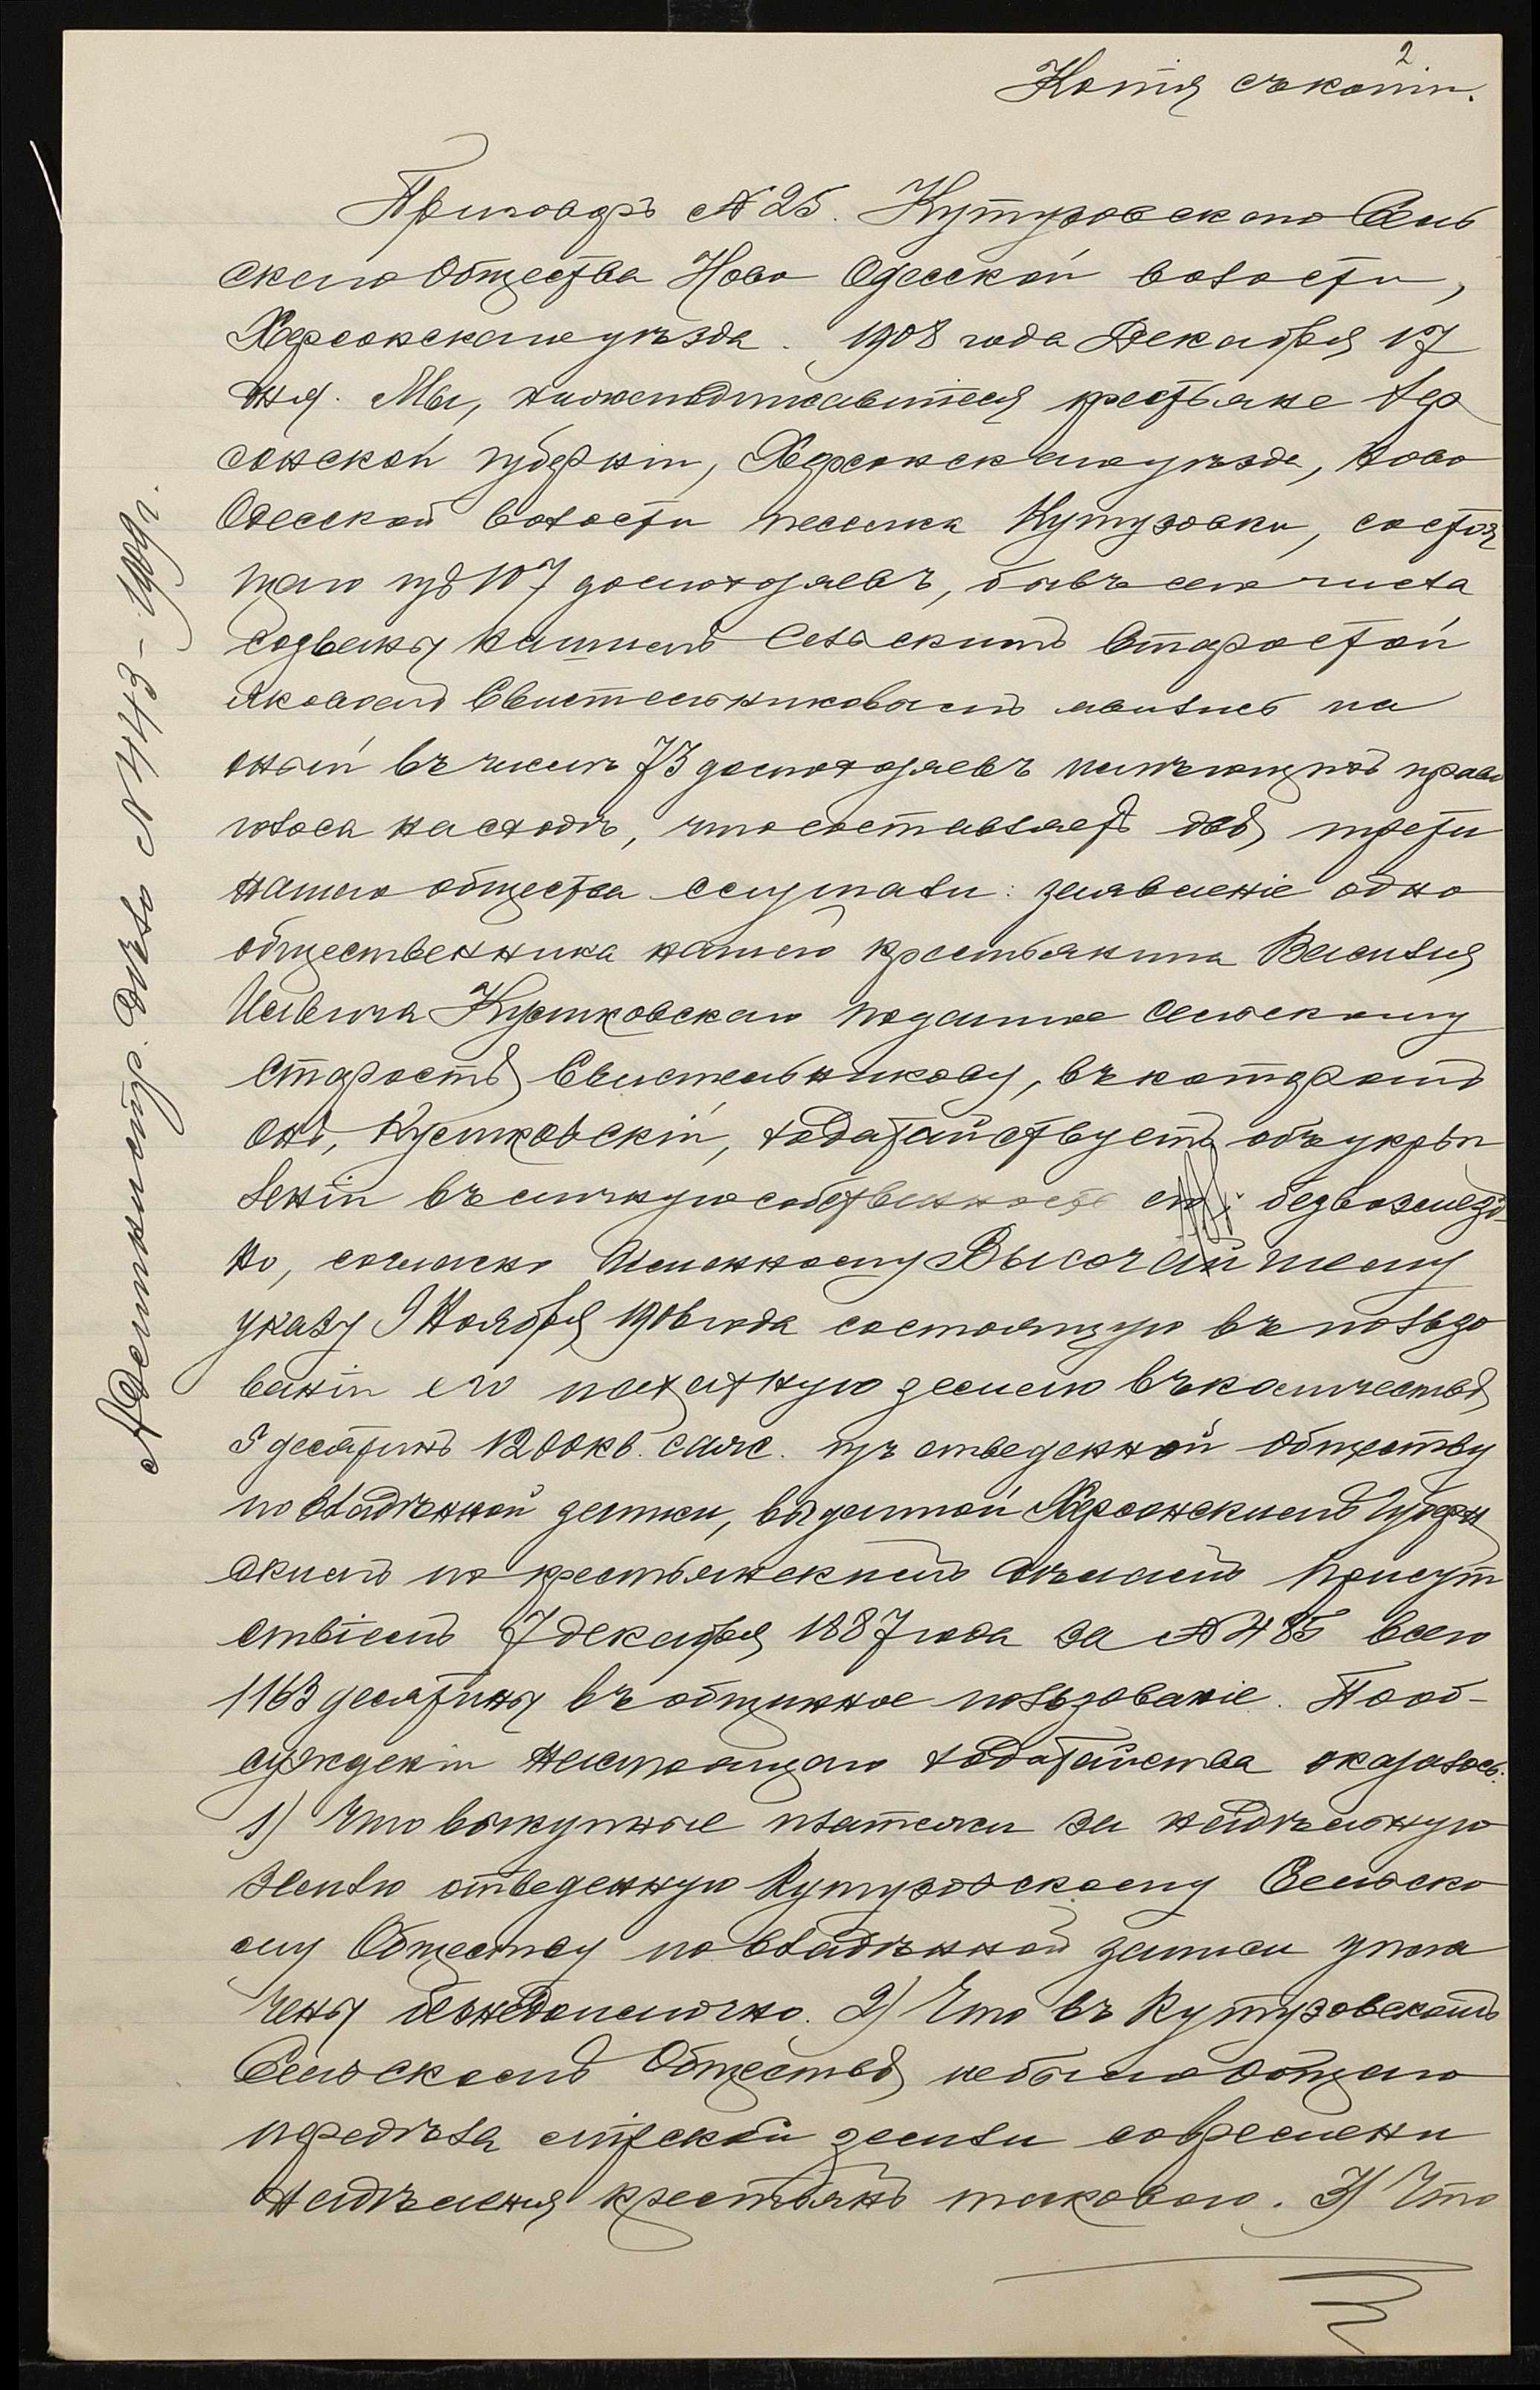 2
Копія съ копіи.
Приговоръ № 25. Кутузовскаго Сель
скаго Общества Ново Одесской волости,
Херсонскаго уѣзда. 1908 года Декабря 17
дня. Мы, нижеподписавшіеся крестьяне Хер
сонской губерніи, Херсонскаго уѣзда, Ново
Одесской волости поселка Кутузовки, состоя
щаго изъ 107 домохозяевъ, бывъ сего числа
созваны нашимъ Сельскимъ Старостой
Яковомъ Свистельниковымъ явились на
оный въ числѣ 73 домохозяевъ имѣющихъ право
голоса на сходѣ, что составляетъ двѣ трети
нашего общества слушали: заявленіе одно
общественника нашего крестьянина Василія
Кушковскаго поданное Сельскому
Старостѣ Свистельникову, въ которомъ
онъ, Кушковскій, ходатайствуетъ объ укрѣп
леніи въ личную собственность безвозмезд-
но, согласно Именному Высочайшему
указу 9 Ноября 1906 года состоящую въ пользо
ваніи его пахатную землю въ количествѣ
5 десятинъ 1200 кв. саж. изъ отведенной Обществу
по владѣнной записи, выданной Херсонскимъ Губерн
скимъ по крестьянскимъ дѣламъ Присут
ствіемъ 7 декабря 1887 года за № 485 всего
1163 десятины въ общинное пользованіе. По об-
сужденіи настоящаго ходатайства оказалось:
1) Что выкупные платежи за надѣльную
землю отведенную Кутузовскому Сельско
му Обществу по владѣнной записи упла
чены безнедоимочно. 2) Что въ Кутузовскомъ
Сельскомъ Обществѣ не было общаго
передѣла мірской земли со времени
надѣленія крестьянъ таковою. 3) Что
Администр. дѣло № 443 - 1909 г.